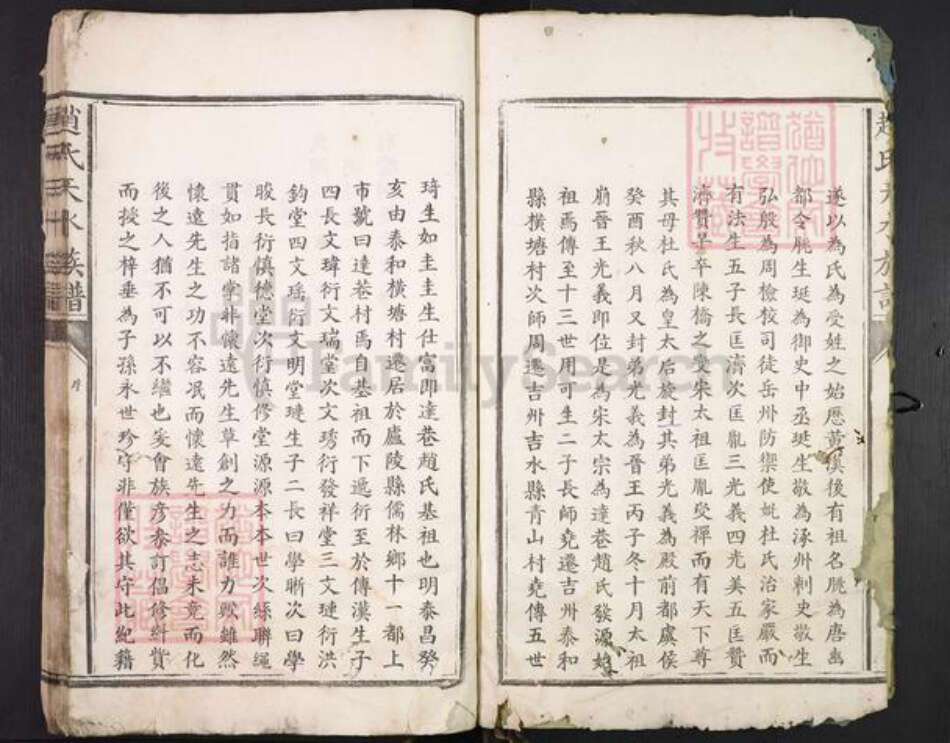 遂以為氏為受姓之始歷黃漢後有祖名朓為唐幽
都令朓生珽為御史中丞珽生敬為涿州刺史敬生
弘殷為周檢校司徒岳州防禦使妣杜氏治家嚴而
有法生五子長匡濟次匡胤三光義四光美五匡贊
濟贊早卒陳橋之變宋太祖匡胤受禪而有天下尊
其母杜氏為皇太后旋封其弟光義為殿前都虞侯
癸酉秋八月又封弟光義為晉王丙子冬十月太祖
崩晉王光義即位是為宋太宗為達巷趙氏發源始
祖焉傳至十三世用可生二子長師堯遷吉州泰和
縣橫塘村次師周遷吉州吉水縣青山村堯傳五世
琦生如圭圭生仕富即達巷趙氏基祖也明泰昌癸
亥由泰和橫塘村遷居於廬陵縣儒林鄉十一都上
市號曰達巷村焉自基祖而下遞衍至於傳漢生子
四長文瑋衍文瑞堂次文琇衍發祥堂三文璉衍洪
鈞堂四文瑤衍文明堂璉生子二長曰學晰次曰學
晙長衍慎德堂次衍慎修堂源源本本世次絲聯繩
貫如指諸掌非懷遠先生草創之力而誰力歟雖然
懷遠先生之功不容泯而懷遠先生之志未竟而化
後之人猶不可以不繼也爰會族彥泰訂倡修糾貲
而授之梓垂為子孫永世珍守非僅欲其守此紀籍
趙氏天水族譜
FamilySearch